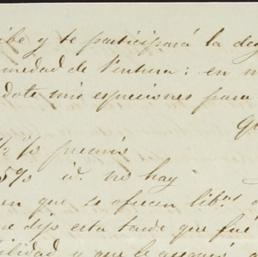 ibe y te participará la de
medad de Ventura: en n
dote mis espresiones para
Q
½ % premio
5% id. no hay
en que se ofrecen lib.s
e dijo esta tarde que fué
ilidad y que le